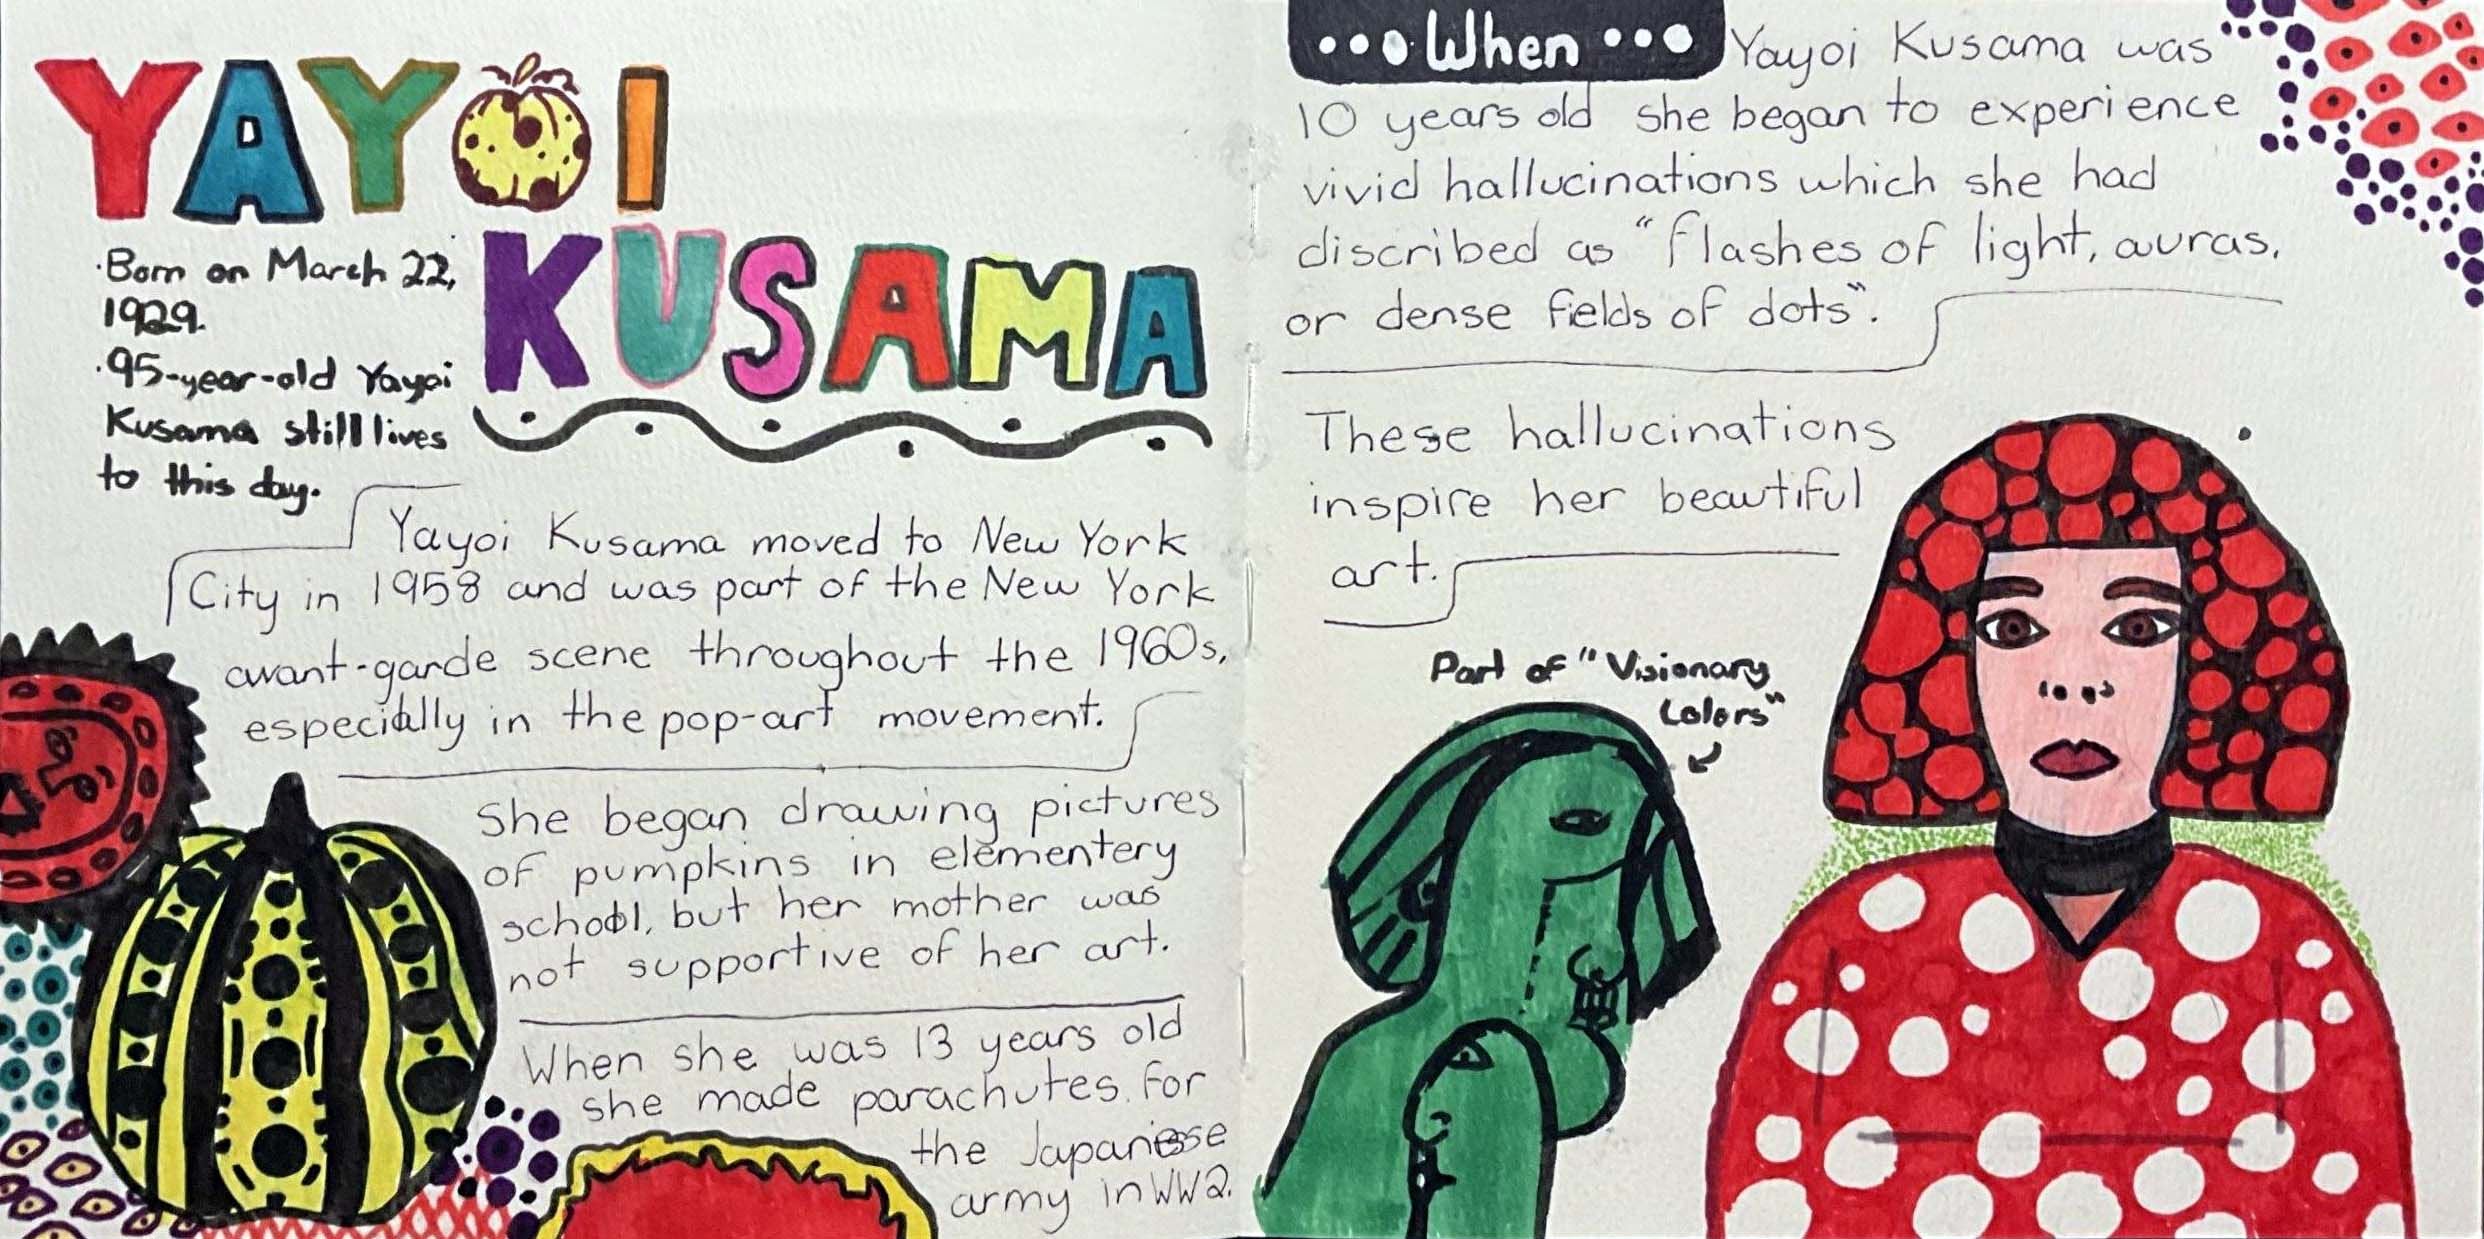 YAYOI
KUSAMA
·Born on March 22,
1929.
·95-year-old Yayoi
Kusama still lives
to this day.
Yayoi Kusama moved to New York
City in 1958 and was part of the New York
avant-garde scene throughout the 1960s,
especially in the pop-art movement.
She began drawing pictures
of pumpkins in elementery
school, but her mother was
not supportive of her art.
When she was 13 years old
she made parachutes for
the Japanese
army in WW2.
•••When••• Yayoi Kusama was
10 years old she began to experience
vivid hallucinations which she had
discribed as "flashes of light, auras,
or dense fields of dots".
These hallucinations
inspire her beautiful
art.
Part of "Visionary
Colors"